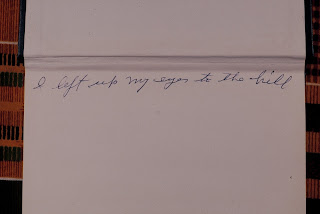 I left up my eyes to the hill